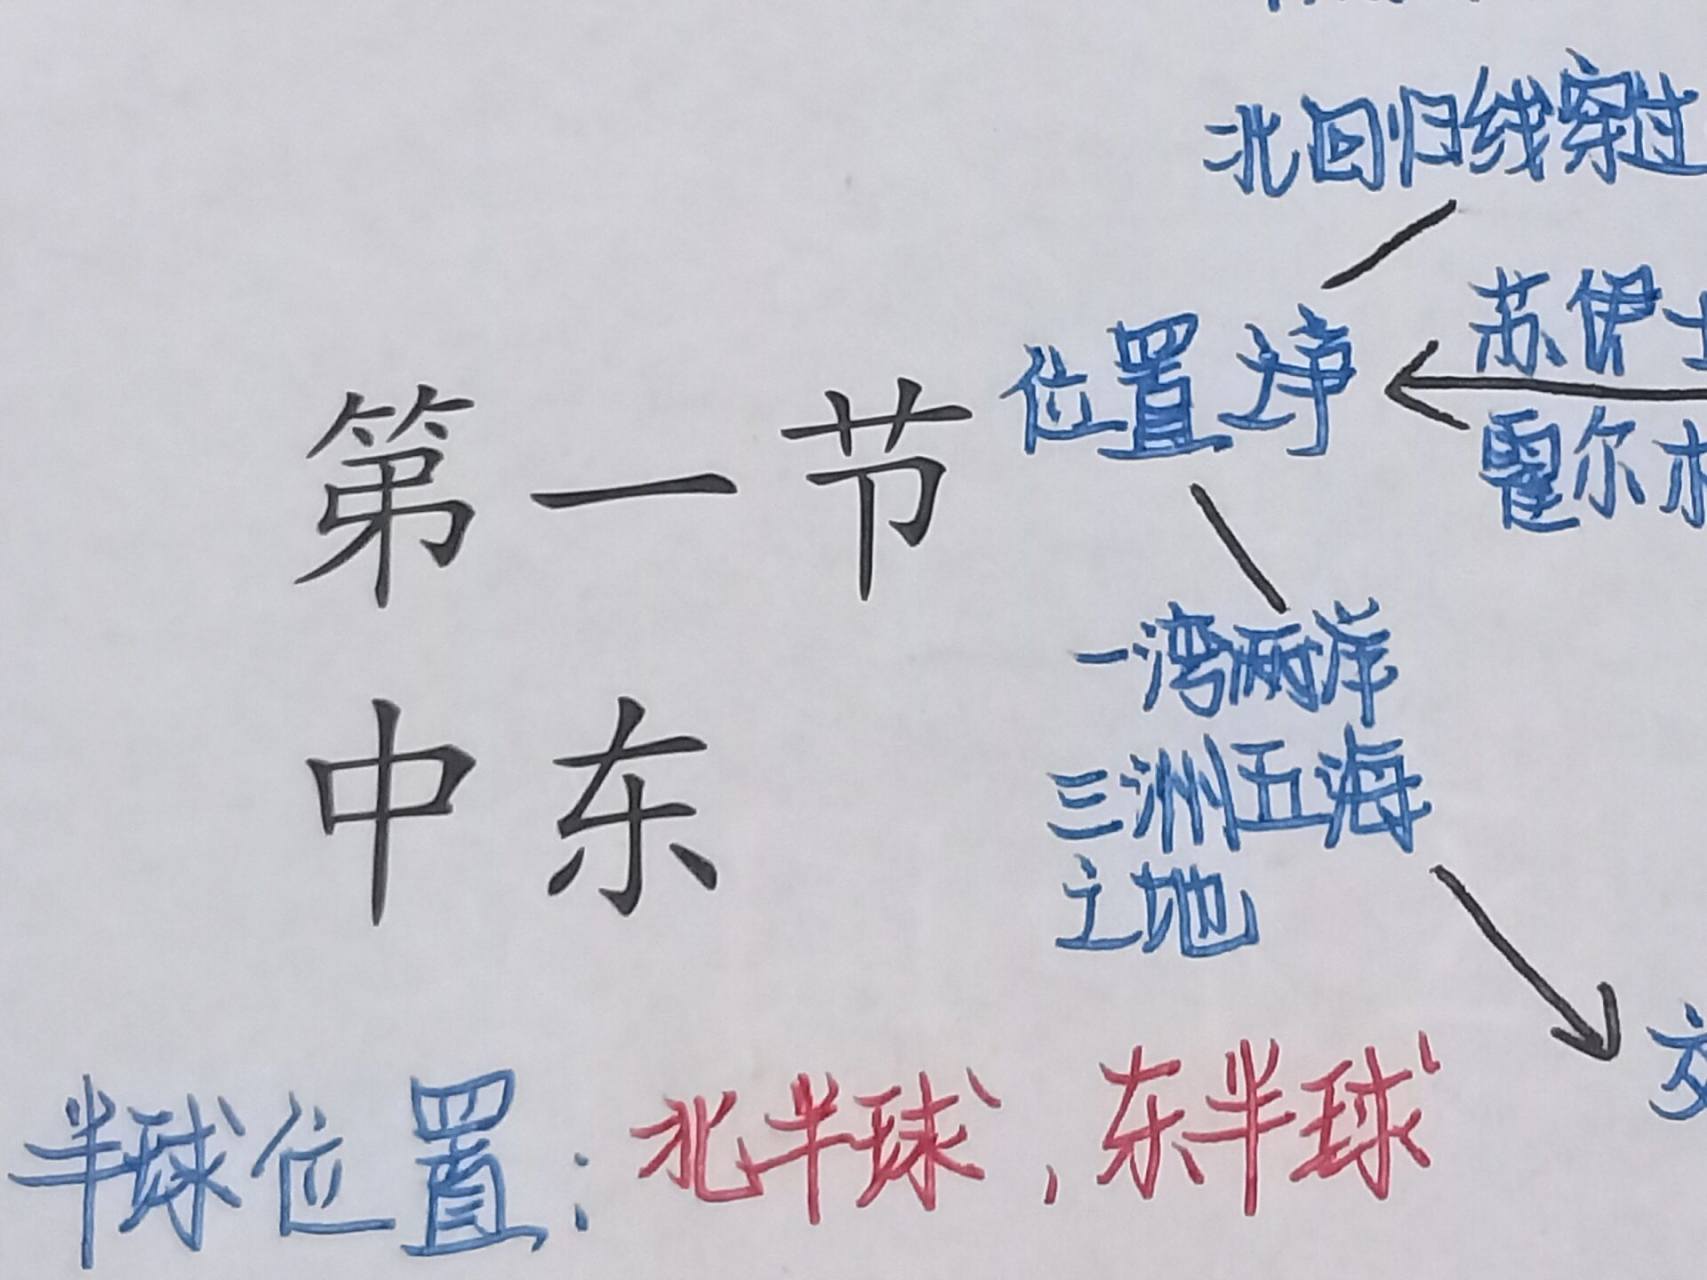 北回归线穿过
苏伊士
位置
霍尔木
第一节
一湾两洋
三洲五海
之地
中东
交
半球位置：北半球，东半球